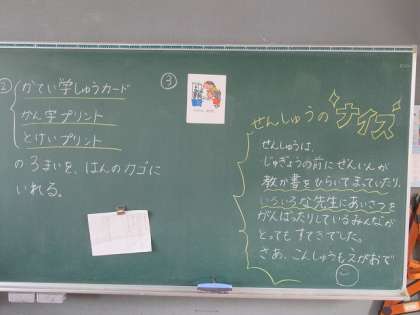 ② かてい学しゅうカード
かん字プリント
とけいプリント
の3まいを、はんのカゴに
いれる。
③
せんしゅうのナイス
せんしゅうは、
じゅぎょうの前にぜんいんが
教か書をひらいてまっていたり、
いろいろな先生にあいさつを
がんばったりしているみんなが
とってもすてきでした。
さあ、こんしゅうもえがおで